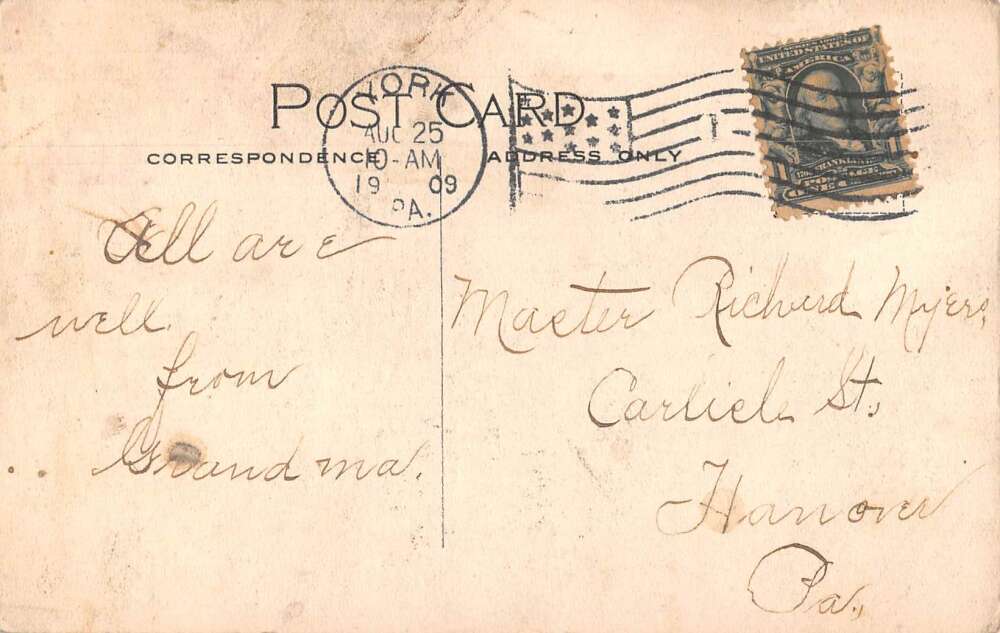 POST CARD
CORRESPONDENCE
ADDRESS ONLY
YORK
AUG 25
10-AM
1909
PA.
UNITED STATES OF
AMERICA
FRANKLIN
POSTAGE
ONE
1
All are
well.
from
Grandma.
Master Richard Myers,
Carlisle St.,
Hanover
Pa.,